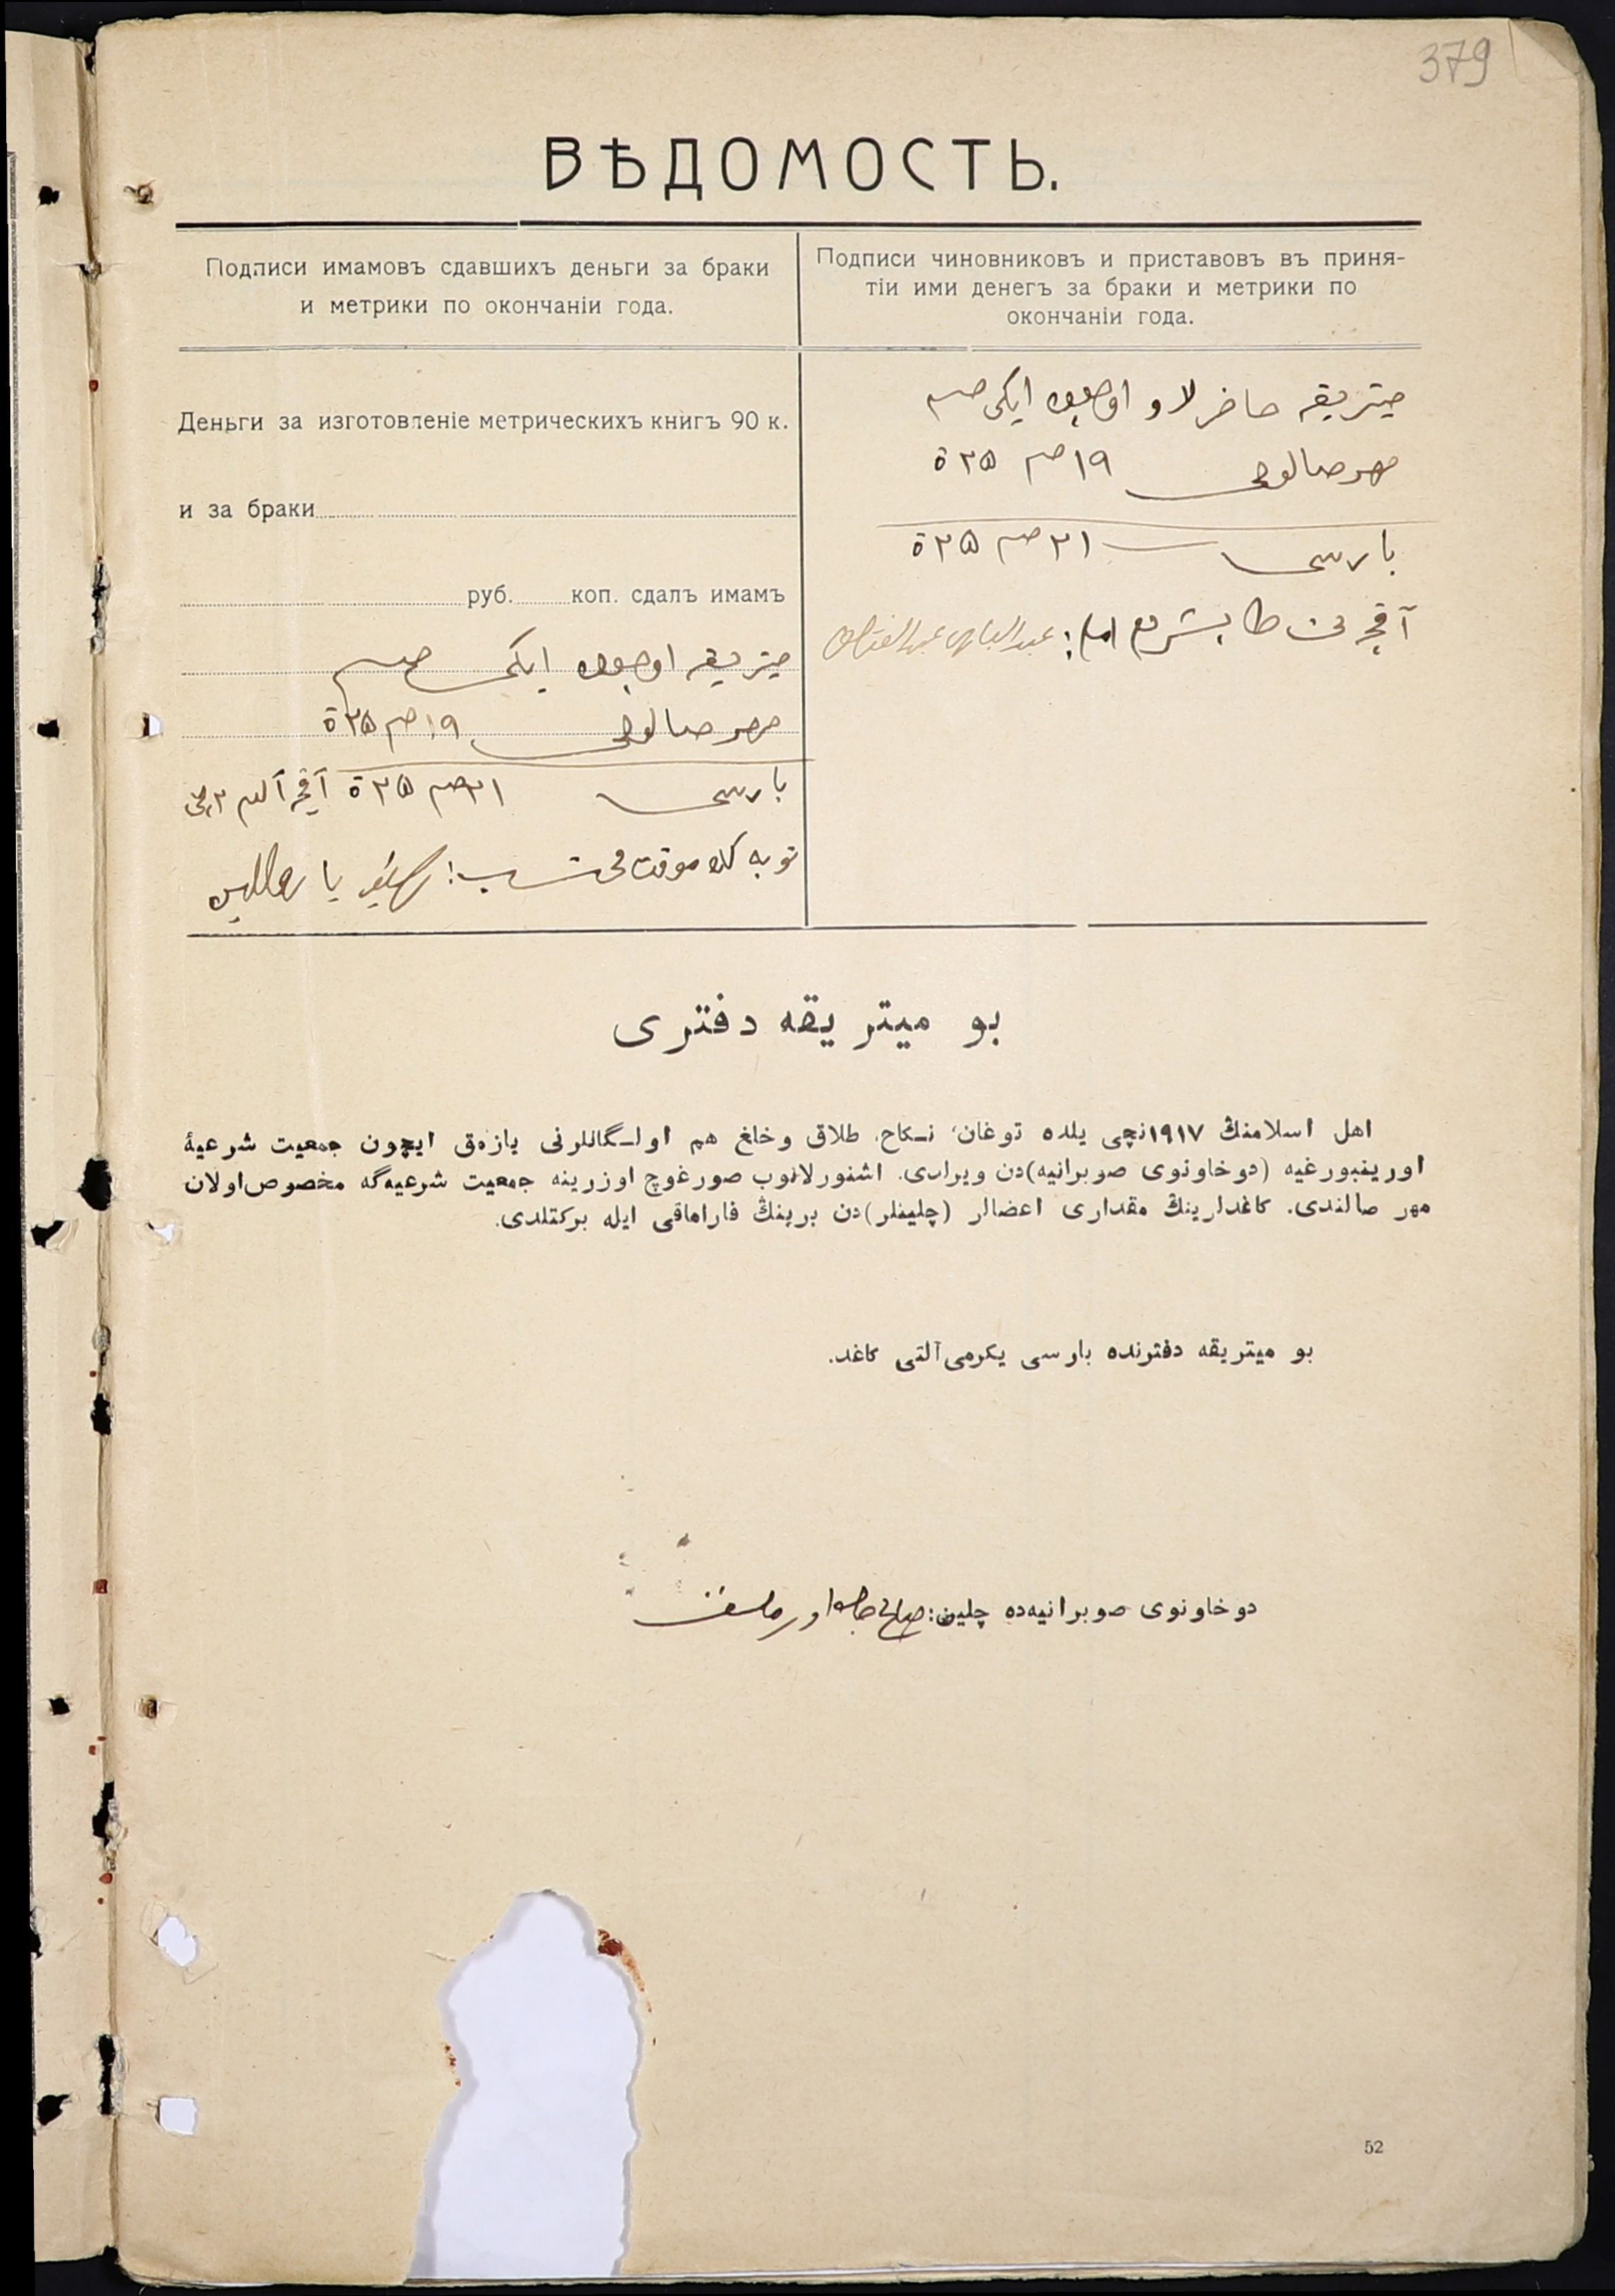 379
ВѢДОМОСТЬ.
Подписи имамовъ сдавшихъ деньги за браки
и метрики по окончаніи года.
Подписи чиновниковъ и приставовъ въ приня-
тіи ими денегъ за браки и метрики по
окончаніи года.
Деньги за изготовленіе метрическихъ книгъ 90 к.
и за браки
руб. коп. сдалъ имамъ
ميتريقه اوچون ایکی صم
مهر صالوچی ١٩ صم ٢٥ ة
بارسی ٢١ صم ٢٥ ة آقچه آلدم
ميتريقه حاضرلاو اوچون ایکی صم
مهر صالوچی ١٩ صم ٢٥ ة
بارسی ٢١ صم ٢٥ ة
آقچه نی طابشردم امام: عبدالباری
بو ميتريقه دفتری
اهل اسلامنڭ ١٩١٧نچی يلده توغان، نـكاح، طلاق و خلغ هم اولـگانلرنی يازمق ايچون جمعيت شرعيۀ
اورينبورغيه (دوخاونوی صوبرانيه)دن ويرلدی. اشنورلانوب صورغوچ اوزرينه جمعيت شرعيه‌گه مخصوص اولان
مهر صالندی. كاغدلرينڭ مقداری اعضالر (چلينلر)دن برينڭ فاراماقی ايله بركتلدی.
بو ميتريقه دفترنده بارسی يكرمی آلتی كاغد.
دوخاونوی صوبرانيه‌ده چلين:
52